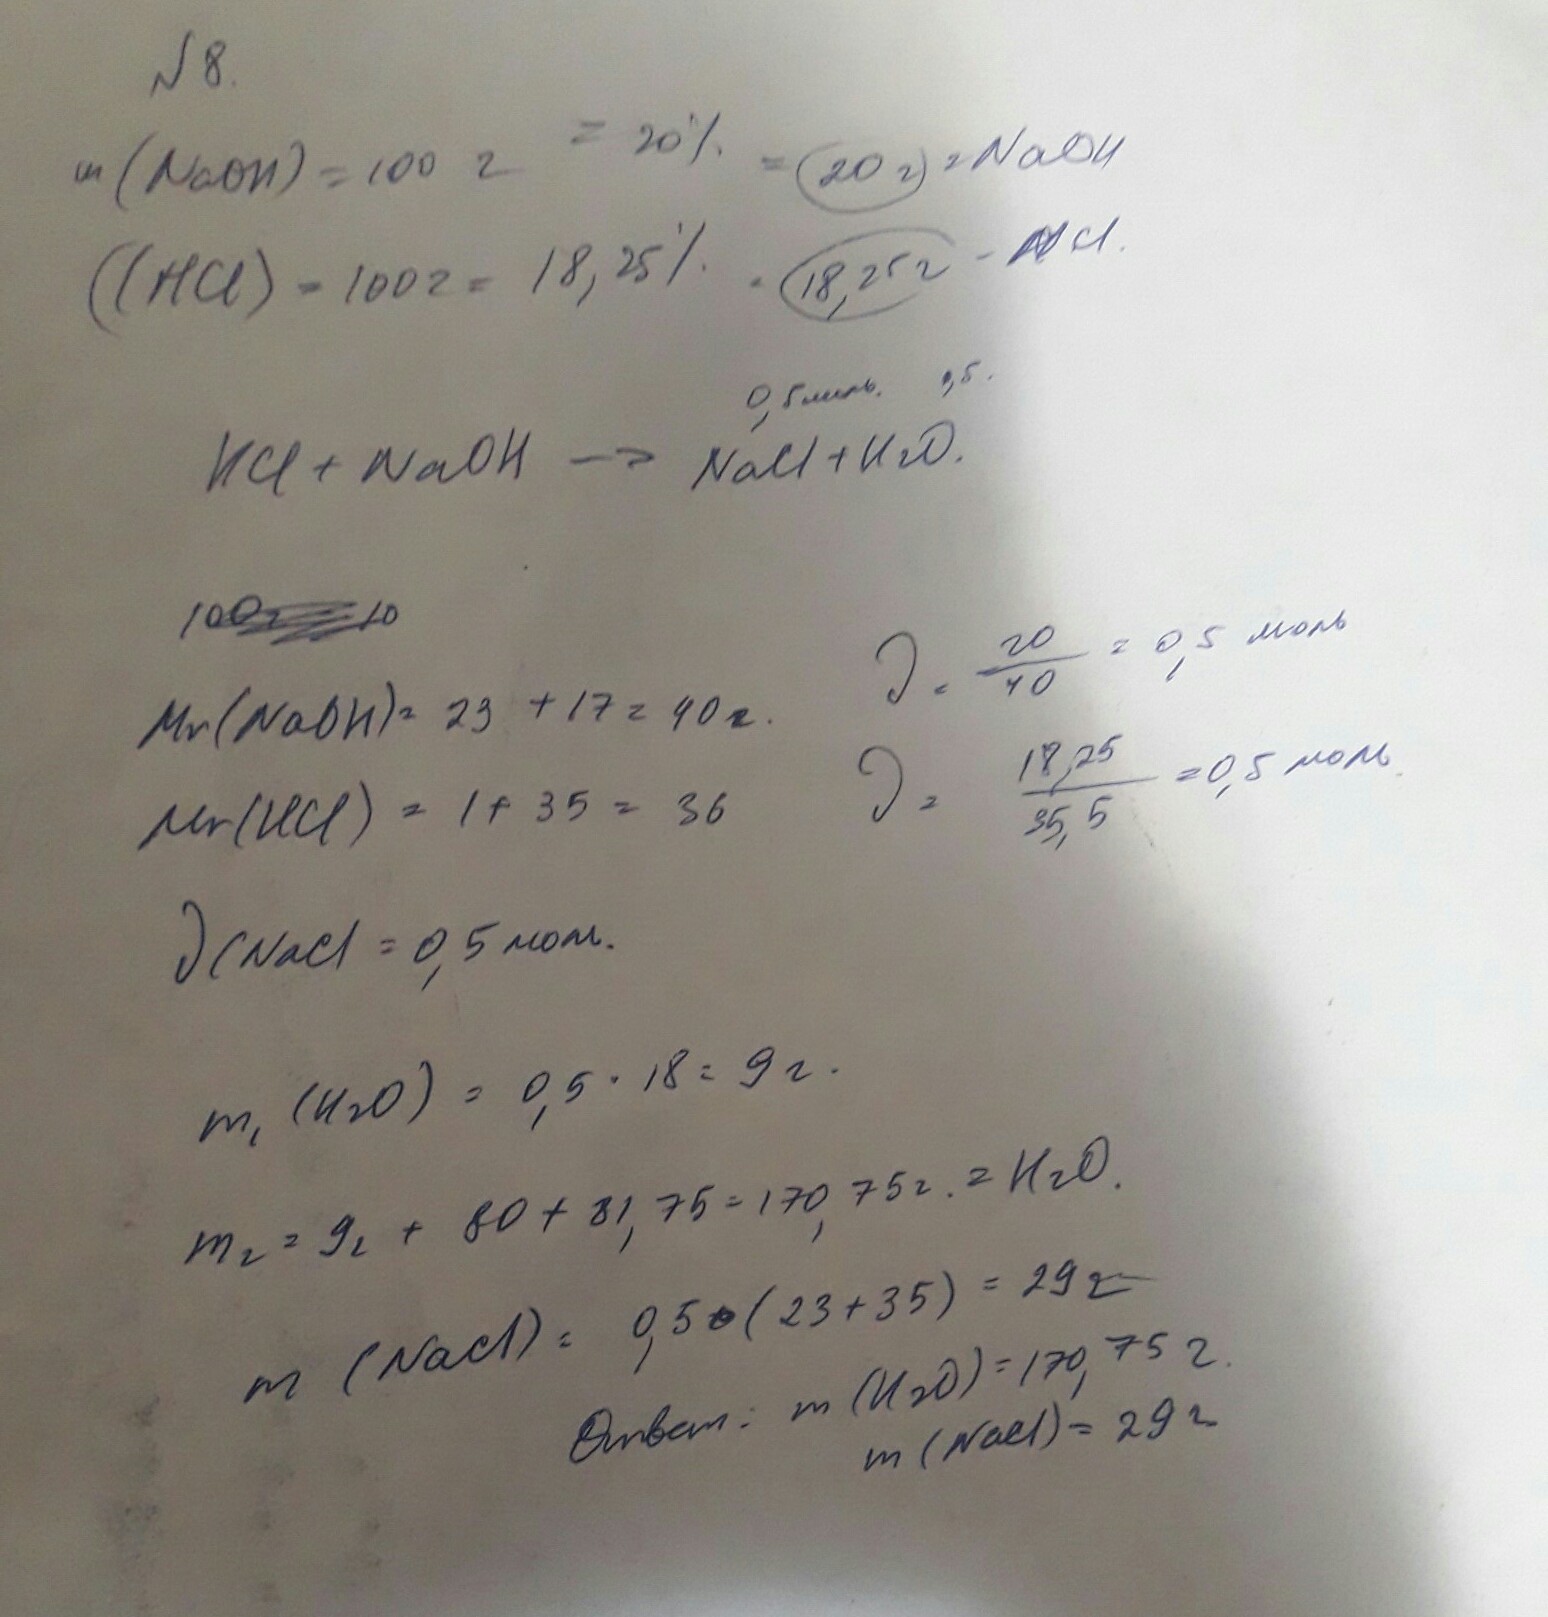 N 8.
m (NaOH) = 100 г = 20% = 20 г = NaOH
((HCl) = 100 г = 18,25% = 18,25 г - HCl.
0,5 моль. 0,5.
HCl + NaOH → NaCl + H2O.
Mr(NaOH) = 23 + 17 = 40 г.
∂ = 20/40 = 0,5 моль
Mr(HCl) = 1 + 35 = 36
∂ = 18,25/35,5 = 0,5 моль.
∂(NaCl = 0,5 мол.
m1 (H2O) = 0,5 · 18 = 9 г.
m2 = 9г + 80 + 81,75 = 170,75г. = H2O.
m (NaCl) = 0,5 · (23 + 35) = 29 г
Ответ: m (H2O) = 170,75 г.
m (NaCl) = 29 г